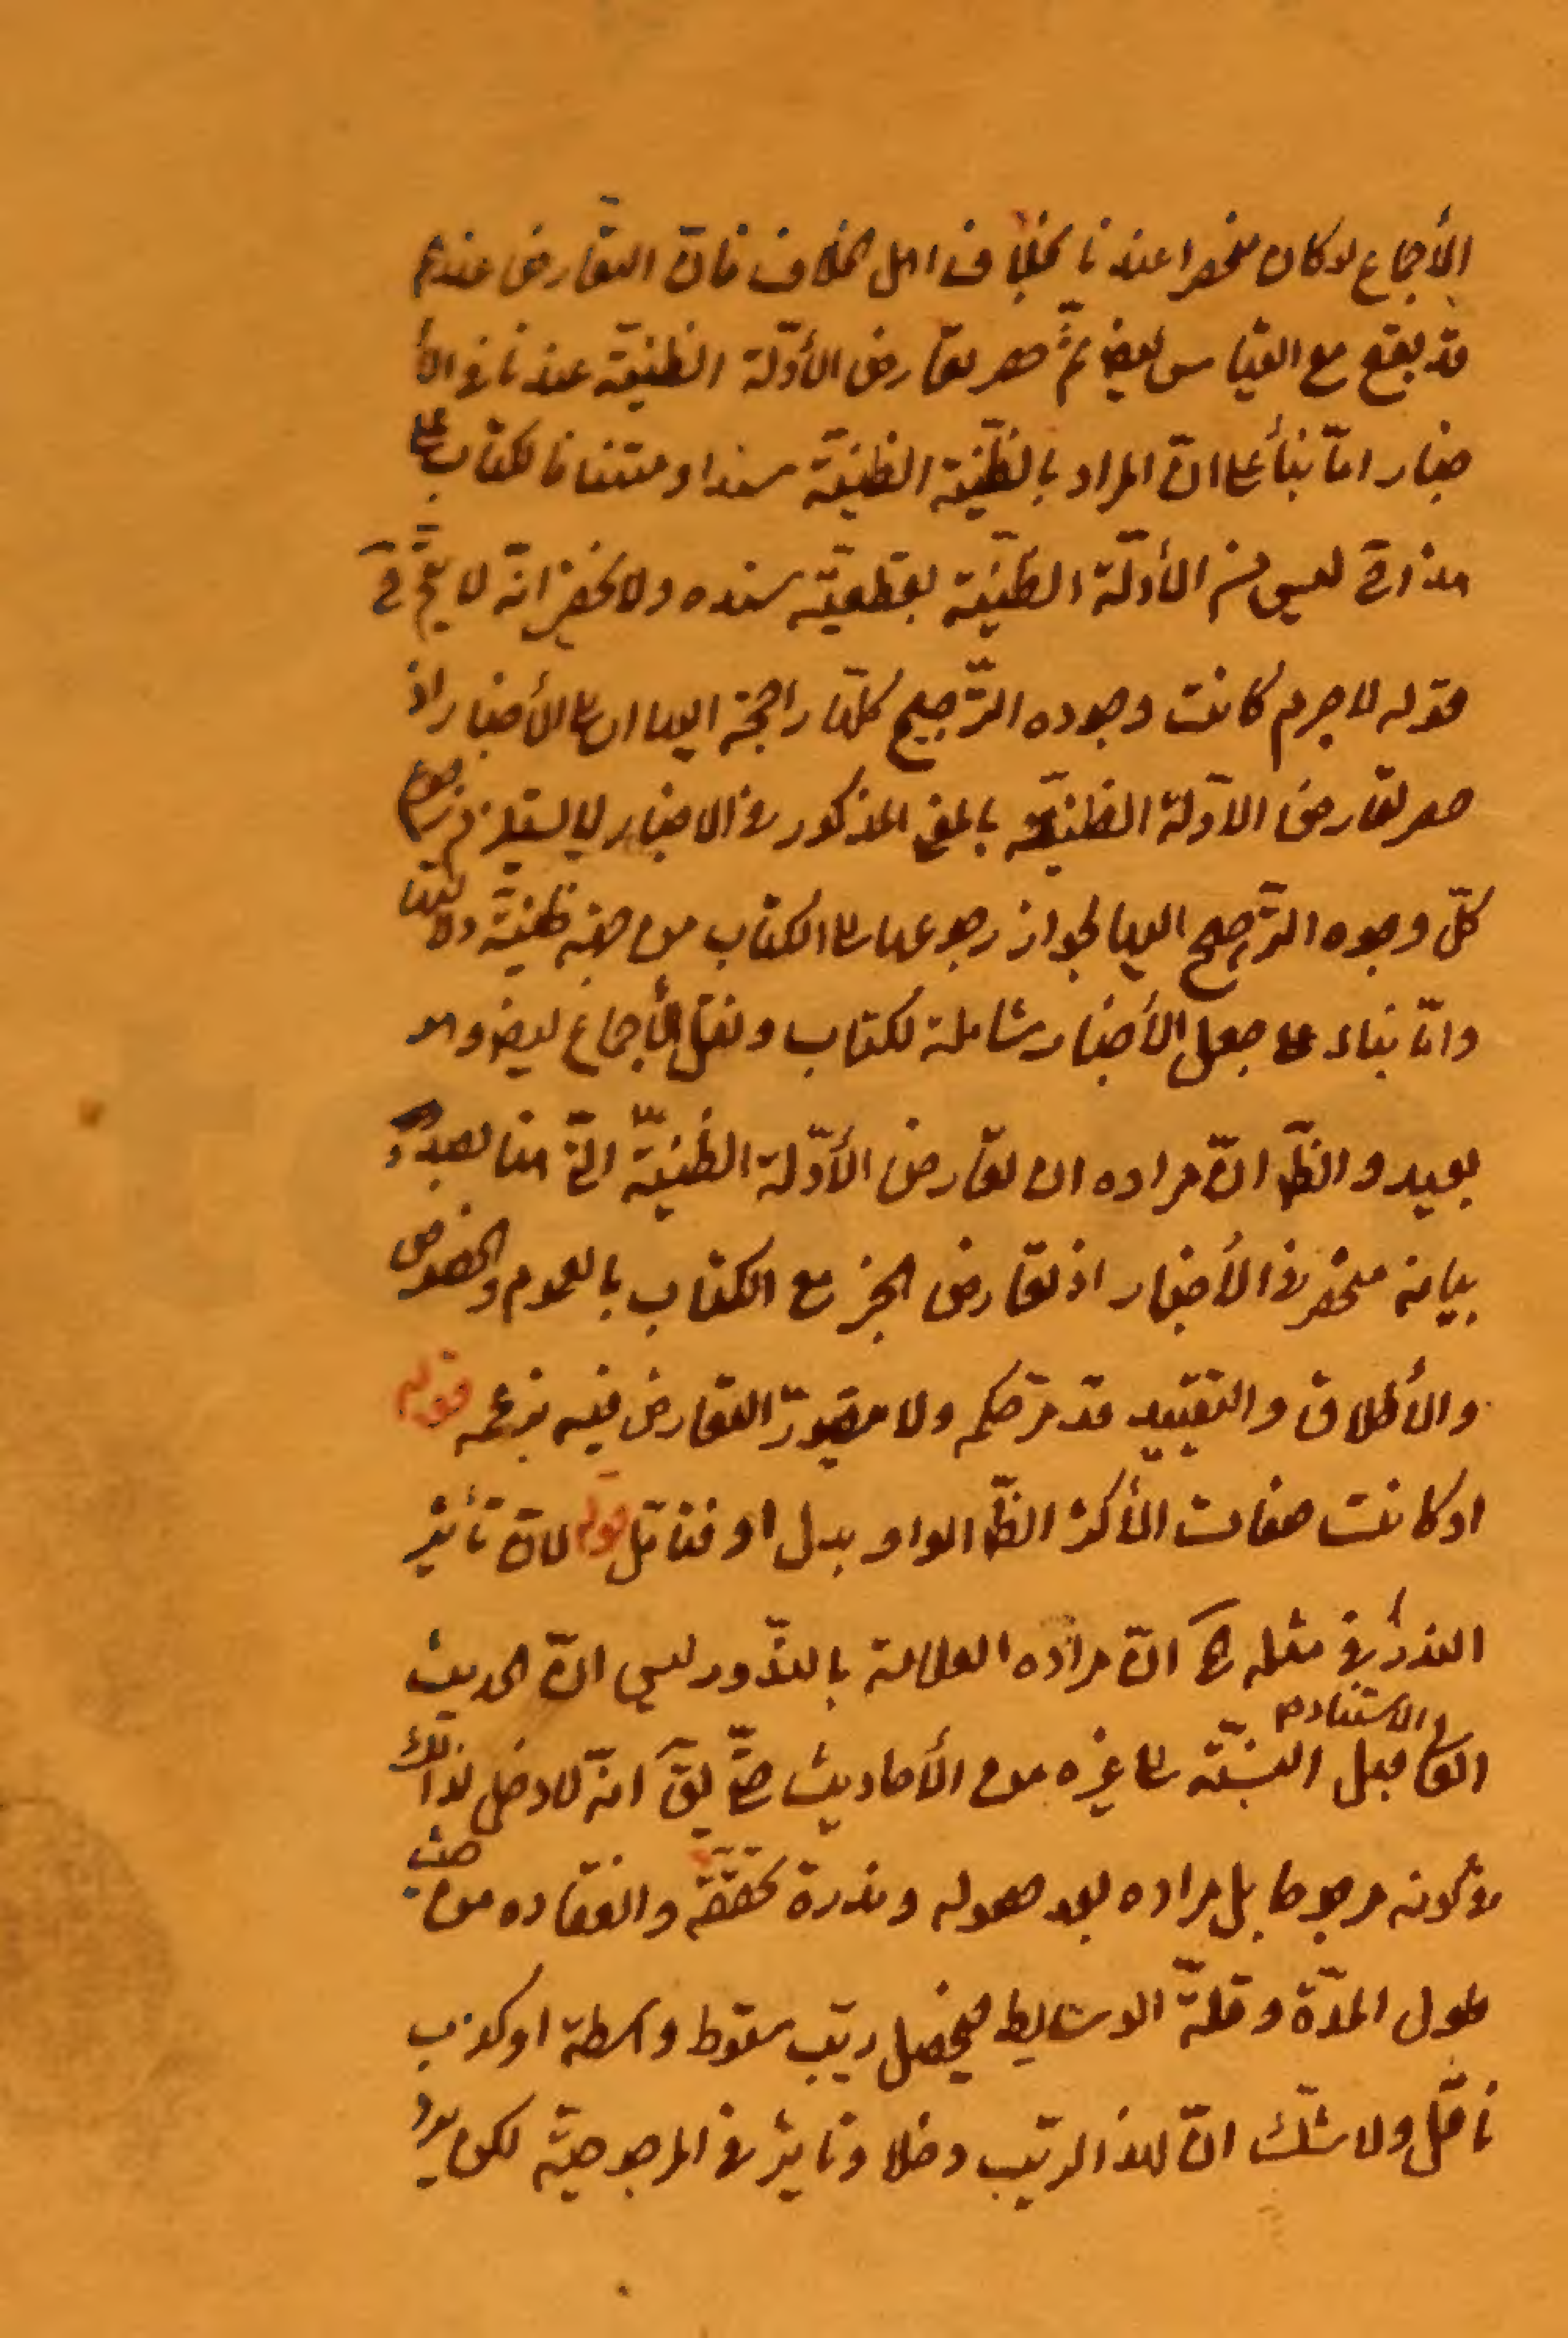 الأجماع لو كان منحصرا عندنا بخلاف اهل الخلاف فان التعّارض عندهم
قد يقع مع القياس ايضا ثمّ حصر تعارض الأدلّة الظنيّة عندنا في الأ
خبار امّا بناء على انّ المراد بالظنّية الظنيّة سندا و متنا فالكتاب على
هذا ليس من الأدلّة الظنيّة لقطعيّة سنده ولا يخفى انّه لا يتمّ ح
قوله لا جرم كانت وجوده الترّجيح كلّها راجحة اليها اى الى الأخبار اذ
حصر تعارض الادّلة الظنيّة بالمعنى المذكور في الاخبار لا يستلزم رجوع
كلّ وجوه الترّجيح اليها لجواز رجوعها الى الكتاب من جهة ظنيّة دلالتها
وامّا بناء على جعل الأخبار شاملة لكتاب ونقل الأجماع ايضا وهو
بعيد و الظّ انّ مراده ان تعّارض الأدّلة الظنيّة التّى هنا بصدد
بيانه منحصر في الأخبار اذ تعارض الخبر مع الكتاب بالعموم والخصوص
والأطلاق والتقييد قد مرّ حكمه ولا يتصوّر التعارض فيه بزعمه قوله
او كانت صفات الأكثر الظّ الواو بدل او فتأمّل قوله لانّ تأثير
الندور في مثله انّ مراده العلامة بالندّور ليس انّ الحديث
العالى قليل النسبّة الى غيره من الأحاديث حتّى يقَ انّه لا دخل لذلك
الاستناد
في كونه مرجوحا بل مراده بعد حصوله وندرة تحقّقه وانعقاده من حيث
طول المدّة و قلّة الوسايط فيحصل ريب سقوط واسطة او كذب
ناقل ولا شكّ انّ لهذا الريب دخلا وتاثير في المرجوحيّة لكن يرد